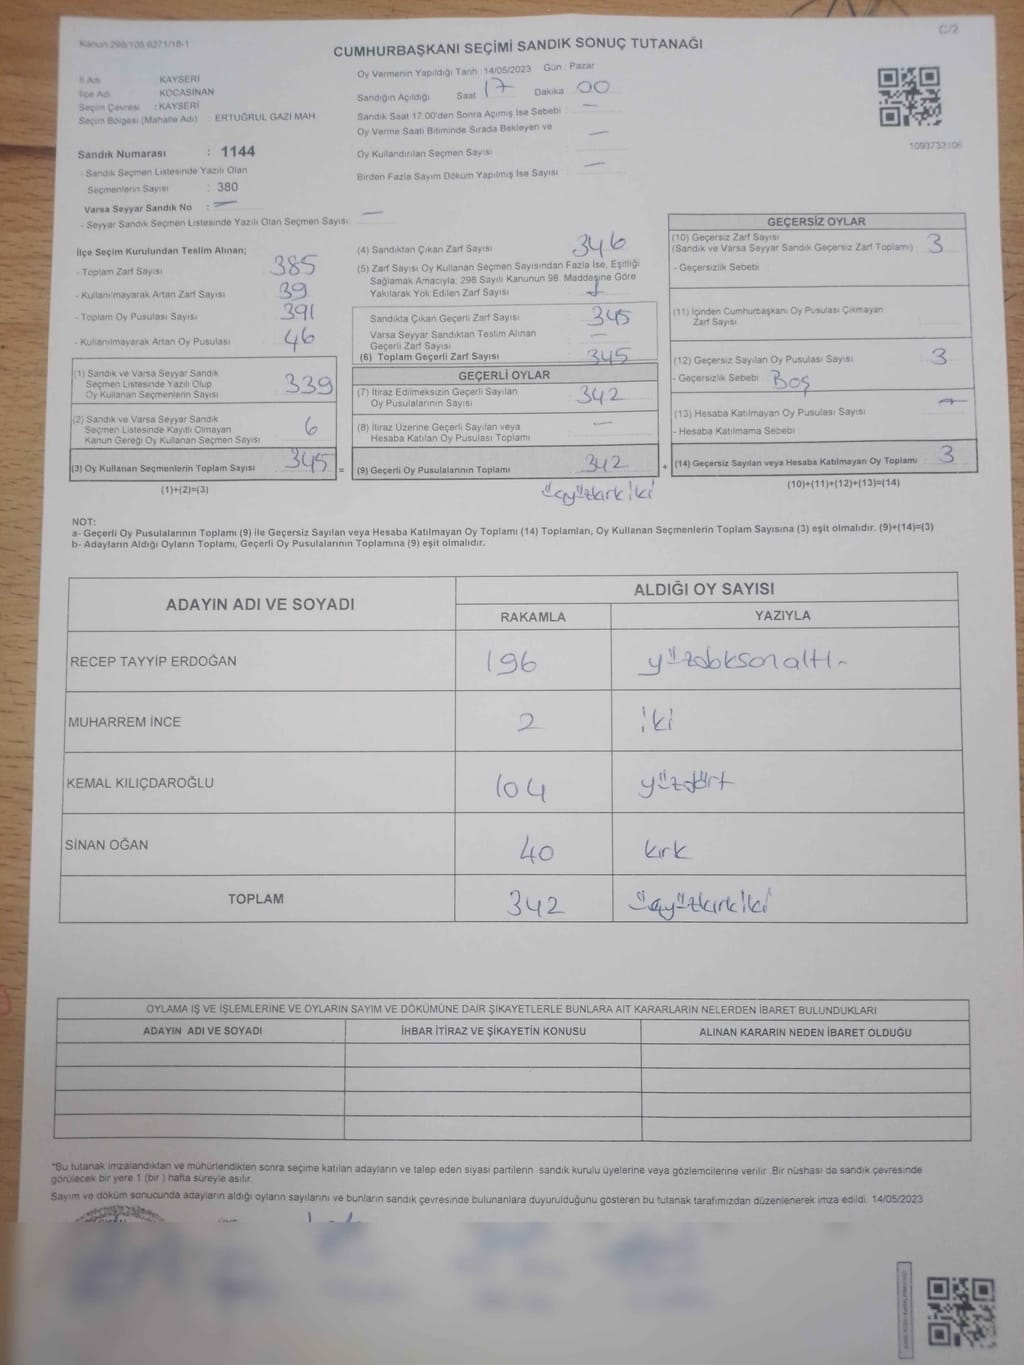 Kanun 298/105 6271/18-1
C/2
CUMHURBAŞKANI SEÇİMİ SANDIK SONUÇ TUTANAĞI
İl Adı KAYSERİ
İlçe Adı KOCASİNAN
Seçim Çevresi : KAYSERİ
Seçim Bölgesi (Mahalle Adı) : ERTUĞRUL GAZİ MAH.
Sandık Numarası : 1144
- Sandık Seçmen Listesinde Yazılı Olan
Seçmenlerin Sayısı : 380
Varsa Seyyar Sandık No : —
- Seyyar Sandık Seçmen Listesinde Yazılı Olan Seçmen Sayısı: —
Oy Vermenin Yapıldığı Tarih :14/05/2023 Gün : Pazar
Sandığın Açıldığı Saat 17 Dakika 00
Sandık Saat 17.00'den Sonra Açımış İse Sebebi : —
Oy Verme Saati Bitiminde Sırada Bekleyen ve
Oy Kullandırılan Seçmen Sayısı —
Birden Fazla Sayım Döküm Yapılmış İse Sayısı : —
1093733106
İlçe Seçim Kurulundan Teslim Alınan;
- Toplam Zarf Sayısı 385
- Kullanılmayarak Artan Zarf Sayısı 39
- Toplam Oy Pusulası Sayısı 391
- Kullanılmayarak Artan Oy Pusulası 46
(1) Sandık ve Varsa Seyyar Sandık
Seçmen Listesinde Yazılı Olup
Oy Kullanan Seçmenlerin Sayısı 339
(2) Sandık ve Varsa Seyyar Sandık
Seçmen Listesinde Kayıtlı Olmayan
Kanun Gereği Oy Kullanan Seçmen Sayısı 6
(3) Oy Kullanan Seçmenlerin Toplam Sayısı 345 =
(1)+(2)=(3)
(4) Sandıktan Çıkan Zarf Sayısı 346
(5) Zarf Sayısı Oy Kullanan Seçmen Sayısından Fazla İse, Eşitliği
Sağlamak Amacıyla; 298 Sayılı Kanunun 98. Maddesine Göre
Yakılarak Yok Edilen Zarf Sayısı 1
Sandıkta Çıkan Geçerli Zarf Sayısı 345
Varsa Seyyar Sandıktan Teslim Alınan
Geçerli Zarf Sayısı —
(6) Toplam Geçerli Zarf Sayısı 345
GEÇERLİ OYLAR
(7) İtiraz Edilmeksizin Geçerli Sayılan
Oy Pusulalarının Sayısı 342
(8) İtiraz Üzerine Geçerli Sayılan veya
Hesaba Katılan Oy Pusulası Toplamı —
(9) Geçerli Oy Pusulalarının Toplamı 342 +
üçyüzkırkiki
GEÇERSİZ OYLAR
(10) Geçersiz Zarf Sayısı
(Sandık ve Varsa Seyyar Sandık Geçersiz Zarf Toplamı) 3
- Geçersizlik Sebebi
(11) İçinden Cumhurbaşkanı Oy Pusulası Çıkmayan
Zarf Sayısı
(12) Geçersiz Sayılan Oy Pusulası Sayısı 3
- Geçersizlik Sebebi Boş
(13) Hesaba Katılmayan Oy Pusulası Sayısı —
- Hesaba Katılmama Sebebi :
(14) Geçersiz Sayılan veya Hesaba Katılmayan Oy Toplamı 3
(10)+(11)+(12)+(13)=(14)
NOT:
a- Geçerli Oy Pusulalarının Toplamı (9) ile Geçersiz Sayılan veya Hesaba Katılmayan Oy Toplamı (14) Toplamları, Oy Kullanan Seçmenlerin Toplam Sayısına (3) eşit olmalıdır. (9)+(14)=(3)
b- Adayların Aldığı Oyların Toplamı, Geçerli Oy Pusulalarının Toplamına (9) eşit olmalıdır.
ADAYIN ADI VE SOYADI
ALDIĞI OY SAYISI
RAKAMLA YAZIYLA
RECEP TAYYİP ERDOĞAN 196 yüzdoksanaltı
MUHARREM İNCE 2 iki
KEMAL KILIÇDAROĞLU 104 yüzdört
SİNAN OĞAN 40 kırk
TOPLAM 342 üçyüzkırkiki
OYLAMA İŞ VE İŞLEMLERİNE VE OYLARIN SAYIM VE DÖKÜMÜNE DAİR ŞİKAYETLERLE BUNLARA AİT KARARLARIN NELERDEN İBARET BULUNDUKLARI
ADAYIN ADI VE SOYADI İHBAR İTİRAZ VE ŞİKAYETİN KONUSU ALINAN KARARIN NEDEN İBARET OLDUĞU
*Bu tutanak imzalandıktan ve mühürlendikten sonra seçime katılan adayların ve talep eden siyasi partilerin sandık kurulu üyelerine veya gözlemcilerine verilir .Bir nüshası da sandık çevresinde
görülecek bir yere 1 (bir ) hafta süreyle asılır.
Sayım ve döküm sonucunda adayların aldığı oyların sayılarını ve bunların sandık çevresinde bulunanlara duyurulduğunu gösteren bu tutanak tarafımızdan düzenlenerek imza edildi. 14/05/2023